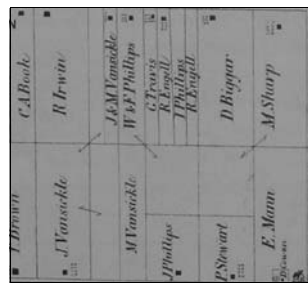 C.A. Book
R Irwin
J & M Vansickle
W & F Phillips
G Travis
R. Engell
J Phillips
R. Engell
D. Biggar
M Sharp
I. Brown
J. Vansickle
M Vansickle
J Phillips
P. Stewart
E. Mann